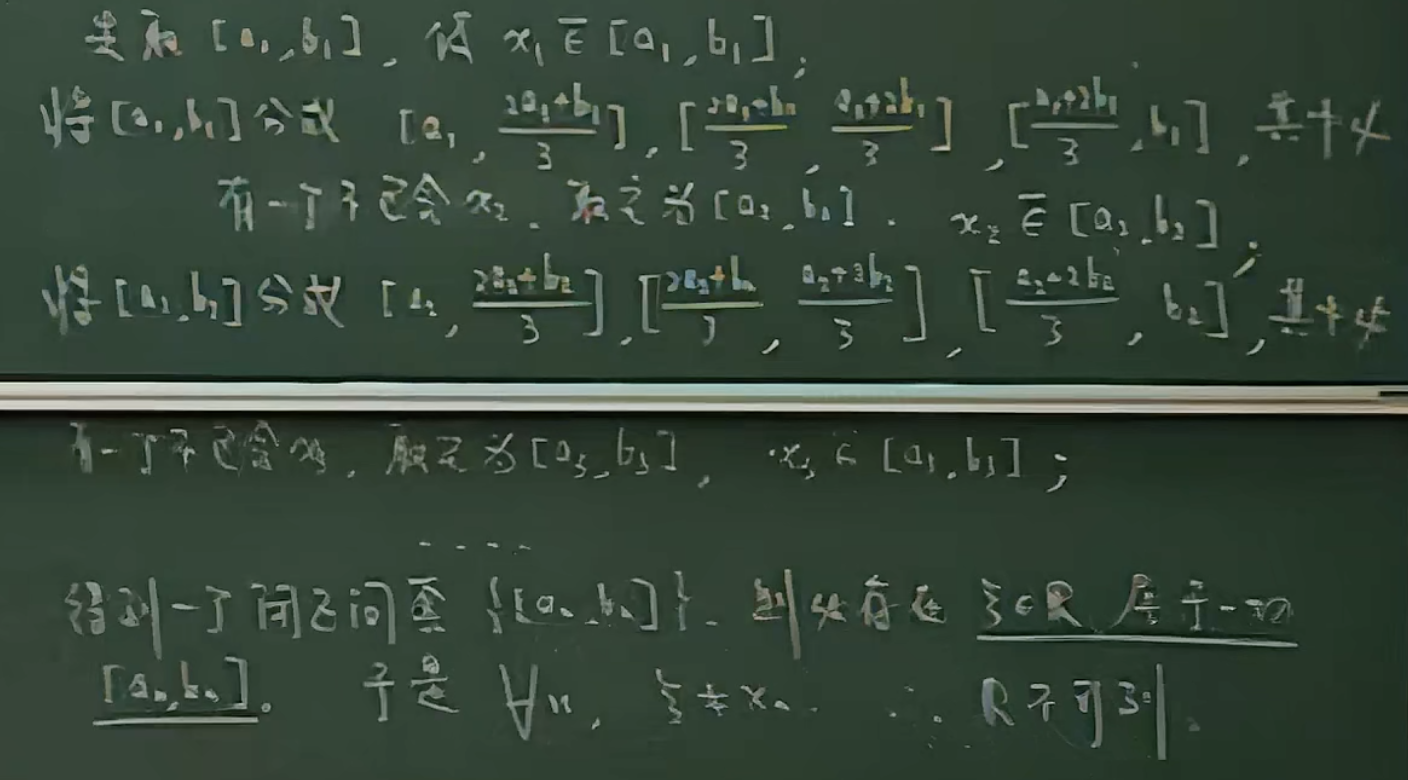 先取 [a₁, b₁], 使 x₁ ∈̅ [a₁, b₁];
将 [a₁, b₁] 分成 [a₁, (2a₁+b₁)/3], [(2a₁+b₁)/3, (a₁+2b₁)/3], [(a₁+2b₁)/3, b₁], 其中必
有一个不包含 x₂. 取之为 [a₂, b₂]. x₂ ∈̅ [a₂, b₂];
将 [a₂, b₂] 分成 [a₂, (2a₂+b₂)/3], [(2a₂+b₂)/3, (a₂+2b₂)/3], [(a₂+2b₂)/3, b₂], 其中必
有一个不包含 x₃, 取之为 [a₃, b₃], x₃ ∈̅ [a₃, b₃];
....
得到一个闭区间套 {[aₙ, bₙ]}. 则必存在 ξ∈R 属于一切
[aₙ, bₙ]. 于是 ∀n, ξ≠xₙ. ∴ R不可列.